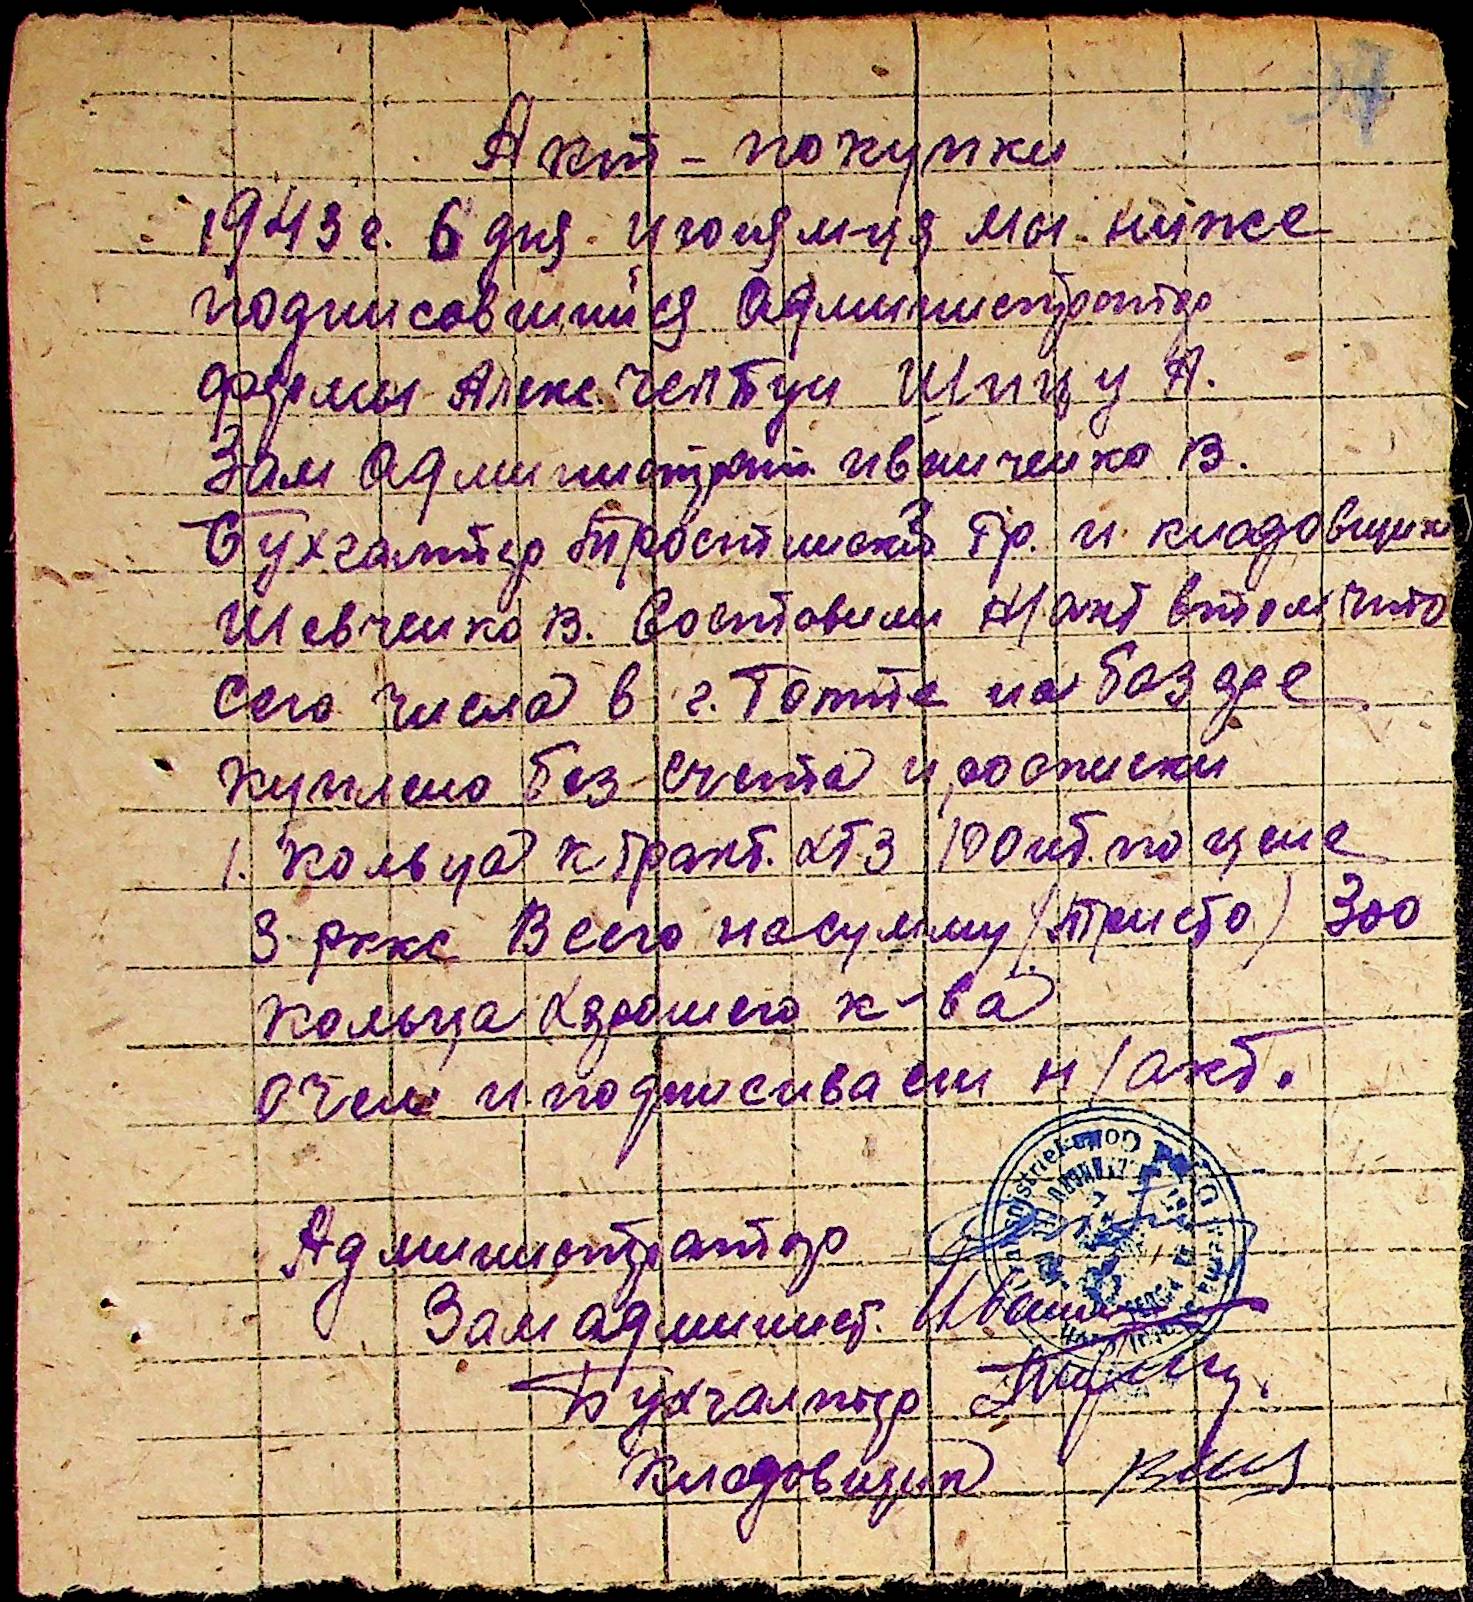 Акт - покупки
1943 г. 6 дня июля м-ця мы ниже
подписавшийся Администратор
фермы Алекс. Шпиц у А.
Зам Администрат Иванченко В.
Бухгалтер Гр. и кладовщик
Шевченко В. Составили н/акт втом что
сего числа в г. на базаре
куплено без счета и росписки
1. Кольца к тракт. ХТЗ 100 шт. по цене
3 ркк Всего на сумму (триста) 300
Кольца хорошего к-ва
О чем и подписиваем н/акт.
Администратор
Зам админист. Иванч
Бухгалтер
Кладовщик ВШев